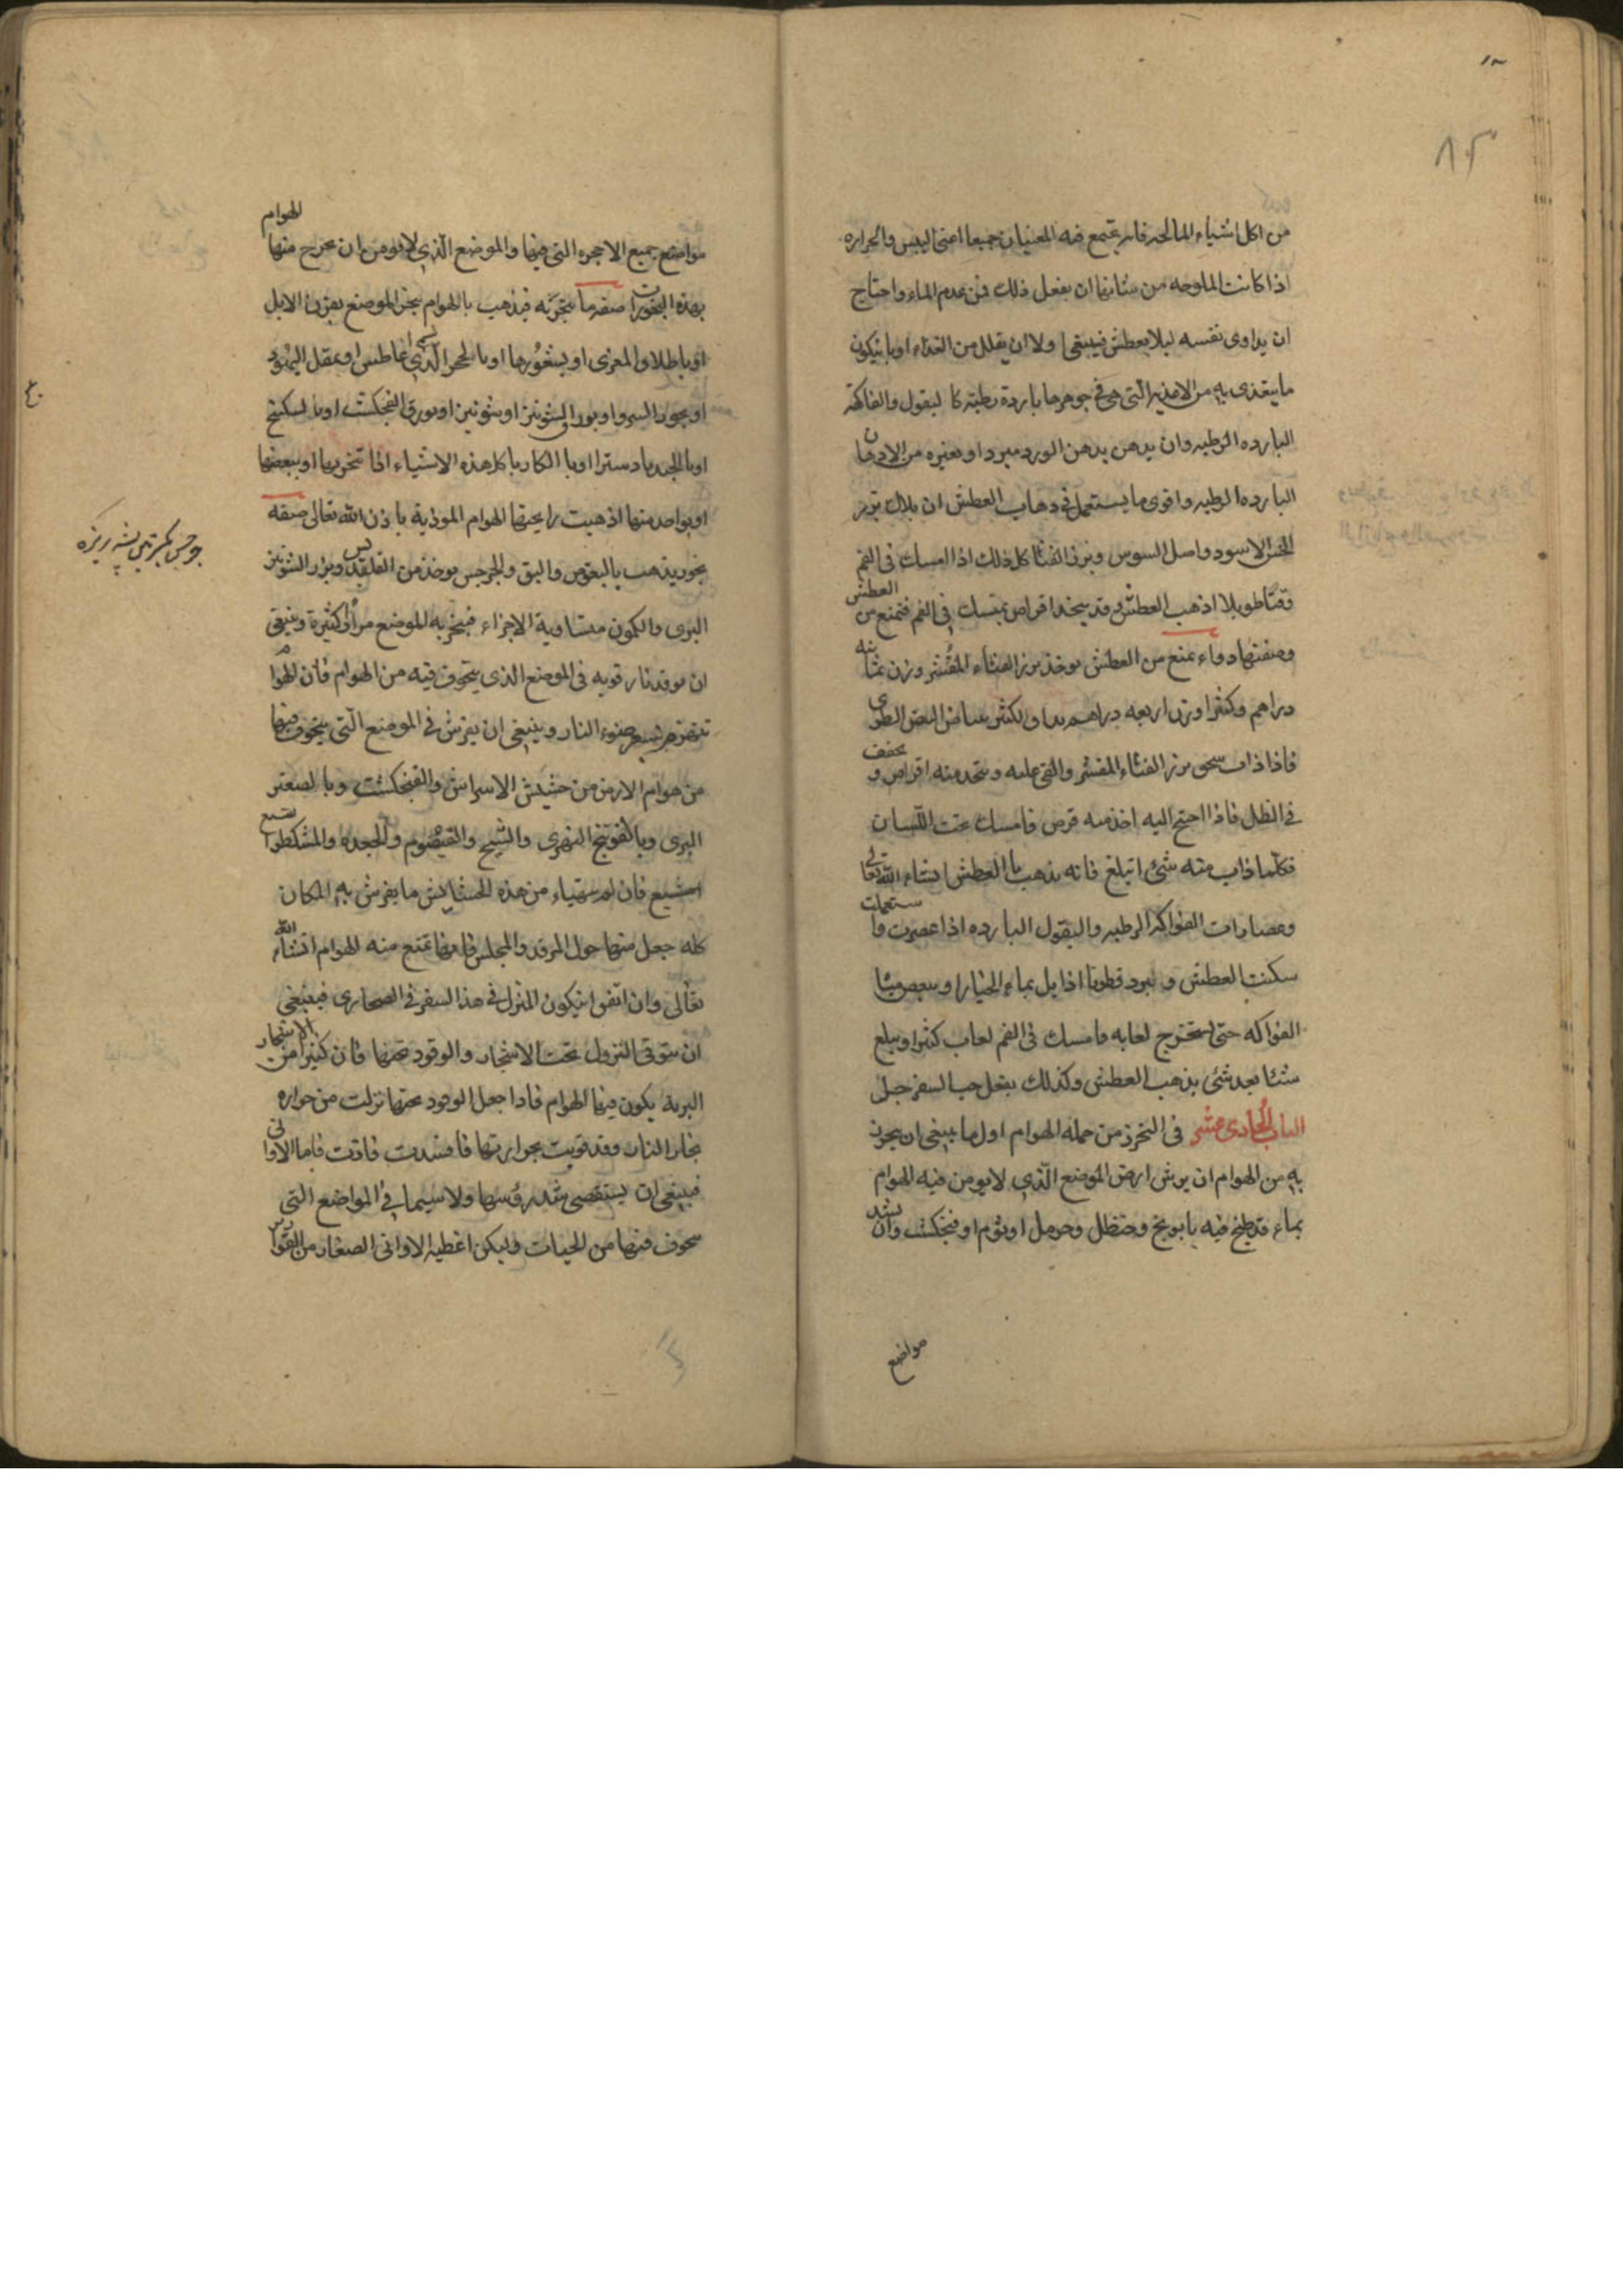 من اكل اشياء المالحه فانه يجتمع فيه المعنيان جميعا اعنى اليبس والحراره
اذا كانت الملوحه من شانها ان يفعل ذلك فمن عدم الماء واحتاج
ان يداوى نفسه ليلا يعطش فينبغى اولا ان يقلل من الغذاء اوبا يتكون
ما يتغذى به من الاغذيه التى هى فى جوهرها باردة رطبة كا لبقول والفاكهة
البارده الرطبه وان يدهن بدهن الورد مبردا وبغيره من الادهان
البارده الرطبه واقوى ما يستعمل فى ذهاب العطش ان بلاك بزر
الخس الاسود واصل السوس وبزر القثا كل ذلك اذا امسك فى الفم
وقتا طويلا اذهب العطش وقد يتخذ اقراص تمسك فى الفم فتمنع من العطش
وصفتها دواء يمنع من العطش يوخذ بزر القثاء المقشر وزن ثمانيه
دراهم وكثيرا وزن اربعه دراهم يداف الكثير ببياض البيض الطرى
فاذا ذاب سحق بزر القثاء المقشر والقى عليه ويتخذ منه اقراص ويجفف
فى الظل فاذا احتج اليه اخذ منه قرص فامسك تحت اللسان
فكلما ذاب منه شئ ابتلع فانه يذهب با العطش انشاء الله تعالى
وعصارات الفواكه الرطبه والبقول البارده اذا عصرت واستعملت
سكنت العطش وبزر قطونا اذا بل بماء الخيار او ببعض مياه
الفواكه حتى يستخرج لعابه وامسك فى الفم لعاب كثيرا ويبلع
شيئا بعد شئ يذهب العطش وكذلك يفعل حب السفرجل
الباب الحادى عشر فى التحرز من جمله الهوام اول ما ينبغى ان يحرز
به من الهوام ان يرش ارض الموضع الذى لا يومن فيه الهوام
بماء قد طبخ فيه بابونج وحنظل وحرمل او ثوم او فنجكشت وان يشد
مواضع
مواضع جميع الاجحره التى فيها والموضع الذى لا يومن ان يخرج منها الهوام
بهذه البخورات صفه ما يتبخر به فيذهب با لهوام يبخر الموضع بقرن الايل
او باظلاف المعزى او بشعورها او با لحجر الذى يسمى غاغاطيس او بمقل اليهود
او بجوز السرو او بورق الشونيز او شونيز او بورق الفنجكشت او با لسكبينج
او با لجندبادسترا او با لكاربا كل هذه الاشياء اذا تبخر بها او ببعضها
او بواحد منها اذهبت رايحتها الهوام الموذية باذن الله تعالى صفه
بخور يذهب بالبعوض والبق والجرجس يوخذ من القلقديس وبزر الشونيز
البرى والكمون متساوية الاجزاء فيبخر به الموضع مرارا كثيرة وينبغى
ان يوقد نار قويه فى الموضع الذى يتخوف فيه من الهوام فان الهوام
تنفر من ضوء النار وينبغى ان يفرش فى الموضع التى يتخوف فيها
من هوام الارض من حشيش الاسراش والفنجكشت وبا لصعتر
البرى وبالفوتنج النهرى والشيح والقيصوم والجعده والمشكطرا
مشيع فان لم يتهياء من هذه الحشايش ما يفرش به المكان
كله جعل منها حول المرقد والمجلس فانها تمنع منه الهوام انشاء الله
تعالى وان اتفق ان يكون المنزل فى هذا السفر فى الصحارى فينبغى
ان يتوقى النزول تحت الاشجار والوقود تحتها فان كثيرا من الاشجار
البرية يكون فيها الهوام فاذا جعل الوقود تحتها نزلت من حراره
بخار النار وقد قويت بحرارتها فافسدت فاذت فاما الاوانى
فينبغى ان يستقصى شد روسها ولا سيما فى المواضع التى
يتخوف فيها من الحيات وليكن اغطية الاوانى الصغار من القوارير
جرجس بكسرتين پشه ريزه